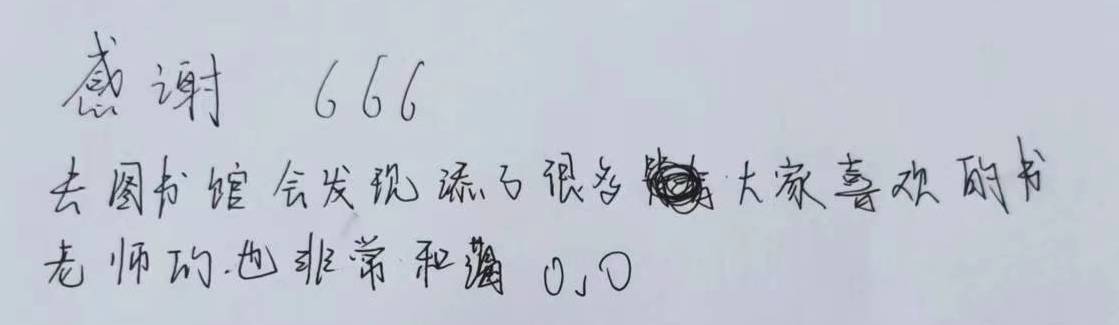 感谢 666
去图书馆会发现添了很多大家喜欢的书
老师的也非常和蔼 0,0